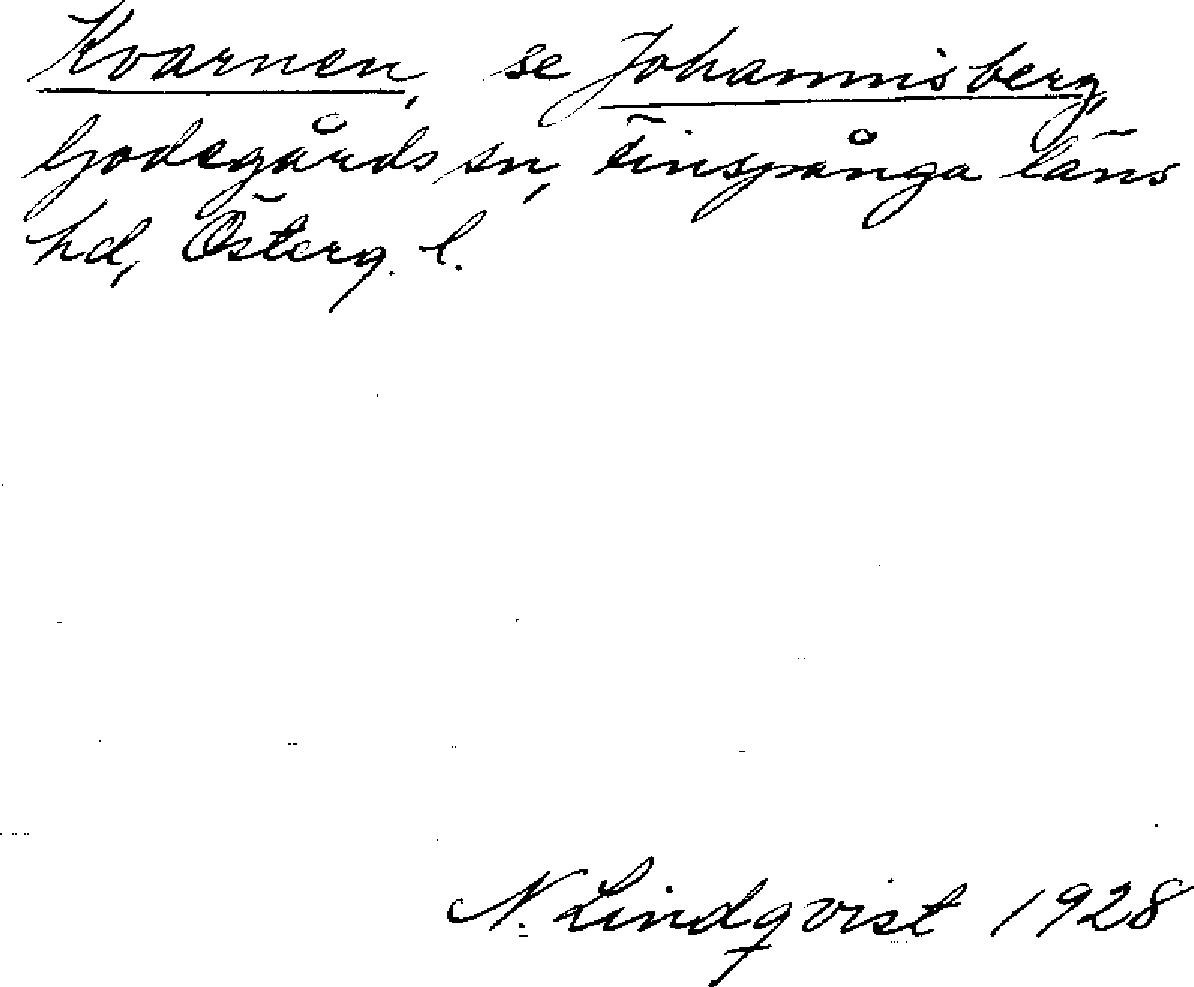 Kvarnen, se Johannisberg,
Godegårds sn, Finspånga läns
hd, Österg. l.
N. Lindqvist 1928